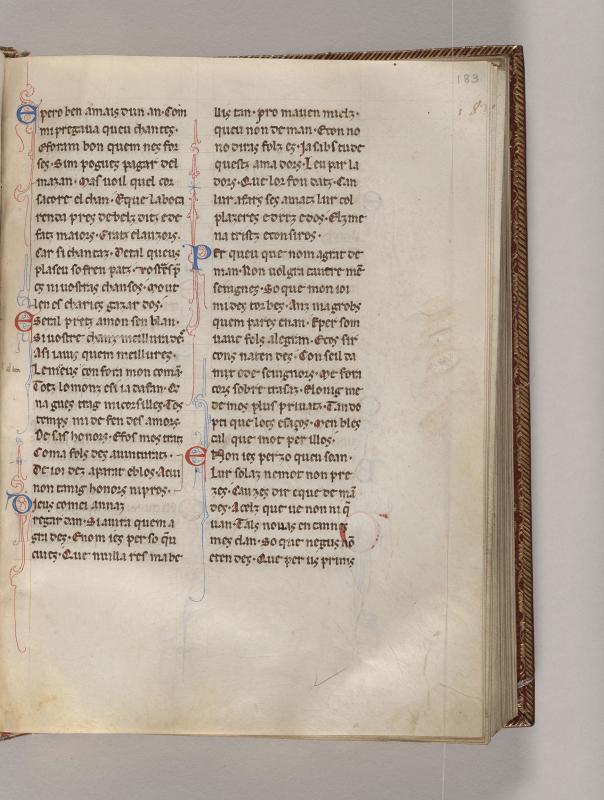 183
E pero ben amais dun an. Com
mi pregaua queu chantes.
E foram bon quem nes for
ses. Sim pogues pagar del
mazan. Mas uoil quel cor
sacore el chan. E que la boca
renda pres debelz ditz e de
fatz maiors. Gratz clauzors.
Car si chantaz. Detal queus
plaseu sofren patz.
es ni uostras chansos. Mout
len es
E setal pretz amon sen blan.
Si uostre chanz meillura dē
Asi iauis quem meillures.
Lenieus con fort mon comā
Totz lo monz esi ia dasan. Er
na gues trag mi corsilles. Tos
temps mi de fen des amors
De sas honors. E fos mos tratz
Coma fols des auinturatz.
De ioi dez aparat eblos. Aeui
non tanig honors ni pros.
D ieus comei annaz
regardan. Si auira quem a
gra des. E nom ies per so qū
cues. Que nuilla res ma be
llis tan. Pro mauen mielz.
queu non deman. E con no
no diras folz es. Ia sabs tu de
questz ama dors. Leu par la
dors. Que lor fon datz. Can
lur afars ses auiatz lur col
plazeres e dritz e dos. Elz me
na tristz e consiros.
P er queu que nom agrat de
man. Non uolgra cautre mē
seingnes. So que mon ioi
mi des tor bes. Anz magrobs
quem pares enan. E per som
uauc fols alegran. E cos sir
cons naten des. Con seil da
mix e de seingnors. Me fora
cors sobre trasaz. E lonig me
de mos plus priuatz. Tan do
pti que locs esaços. Men bles
cal que mot per illos.
E Non ies per zo queu sean.
Lur solaz nemot non pre
zes. Cauzes dir e que de mā
des. Acelz que ue non ni q̄
uan. Tals nouas en canes
mes dan. So que negus nō
eten des. Que per us prims